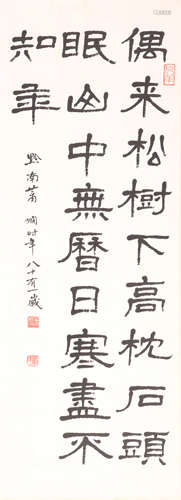 偶来松樹下高枕石頭
眠山中無曆日寒盡不
知年
黔南萧嫻时年八十有一歲